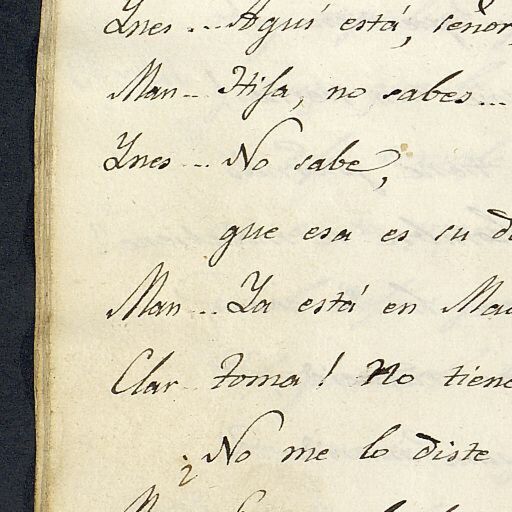 Ynes... Aquí está, señor,
Man... Hija, no sabes...
Ynes... No sabe,
que esa es su
Man... Ya está en
Clar... toma! No tiene
¿No me lo diste